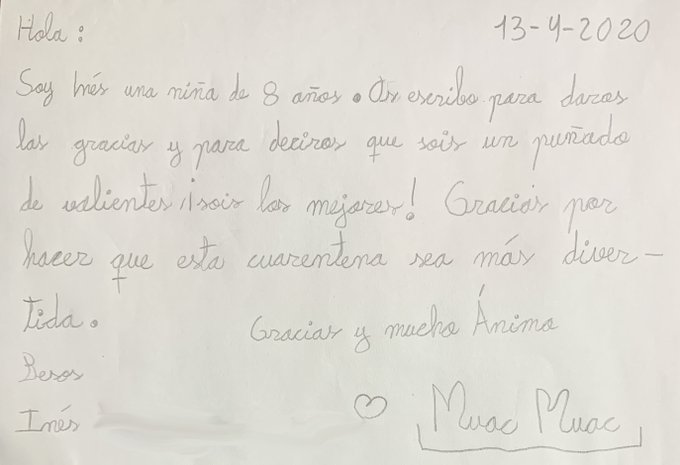 Hola: 13-4-2020
Soy Inés una niña de 8 años. Os escribo para daros
las gracias y para deciros que sois un puñado
de valientes ¡sois los mejores! Gracias por
hacer que esta cuarentena sea más diver-
tida.
Gracias y mucho Ánimo
Besos
Inés
Muac Muac